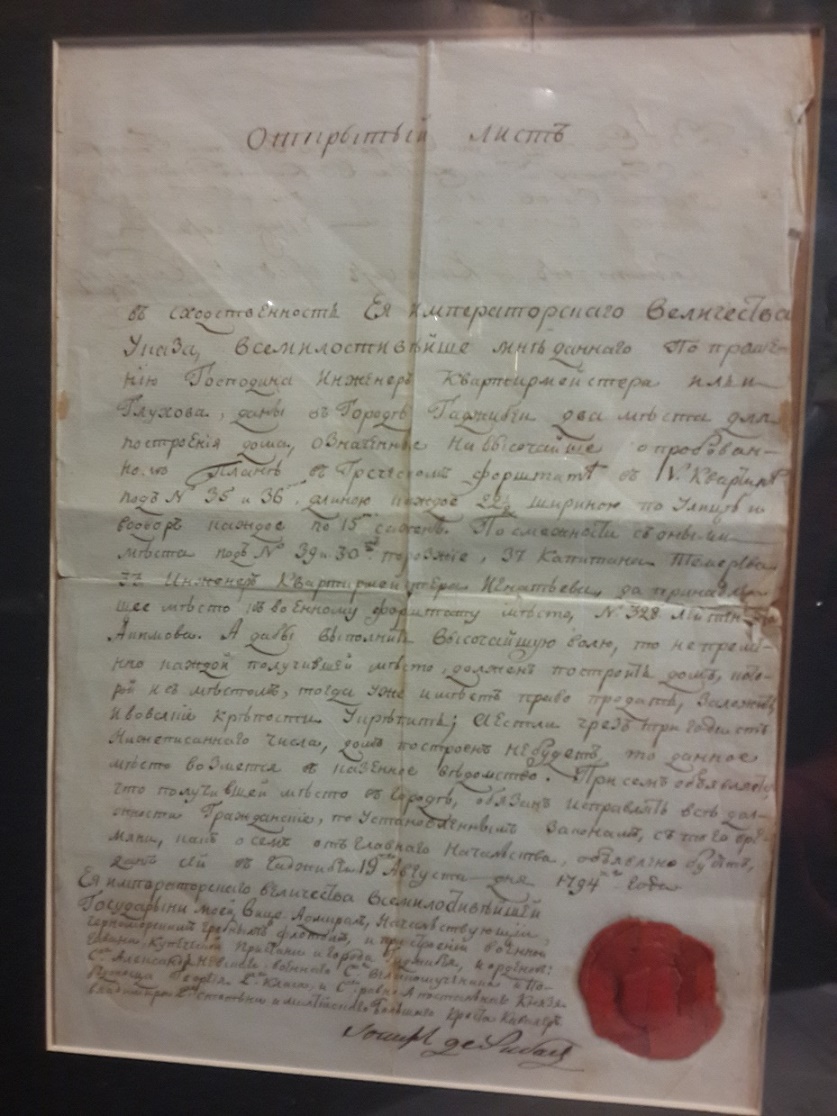 Открытый листъ
въ сходственность Ея императорскаго Величества
Указа, Всемилостивѣйше мнѣ даннаго По проше-
нію Господина Инженеръ Квартирмейстера
Глухова, даны въ Городѣ Гаджибеи два мѣста для
построенія дома, означенные На высочайше опробован-
номъ Планѣ въ Греческомъ форштатѣ въ IV. Кварт
подъ № 35 и 36 длиною каждое 22½ шириною по Улицѣ и
каждое по 15 саженъ. По смежности съ оными
мѣста подъ № 39 и 30 порозжіе, 37 Капитана
Инженеръ Квартирмейстера Игнатьева, да принадлежа-
щее мѣсто къ военному форштату мѣсто, № 328
Акимова. А дабы выполнить Высочайшую волю, то непремѣ-
нно каждой получившей мѣсто, долженъ построить домъ, кото-
рой и съ мѣстомъ, тогда уже имѣетъ право продать, Заложить
и крѣпости Укрѣпить; А естли чрезъ три года отъ
Нижеписаннаго числа, домъ построенъ небудетъ, то данное
мѣсто возмется въ казенное вѣдомство. При семъ объявляетъ,
что получившей мѣсто въ Городѣ, обязанъ исправлять всѣ дол-
жности Гражданскіе, по Установленнымъ Законамъ, съ того вре-
мяни, какъ о семъ отъ Главнаго Начальства, объявлено будетъ,
данъ сей въ Гаджибеи 19 Августа дня 1794 Года
Ея императорскаго величества Всемилостивѣйшей
Государыни моей, Вице Адмиралъ, Начальствующій
черноморскимъ гребнымъ флотомъ, и при строеніи военной
Гавани, Купеческой Пристани и города Гаджибея, и орденовъ:
Александра Невскаго военнаго Великомученика и По-
бѣдоносца Георгія 2 Класа, и равно Апостольнаго Князя
Владимира 2 степени и Большаго Креста Кавалеръ
де Рибасъ